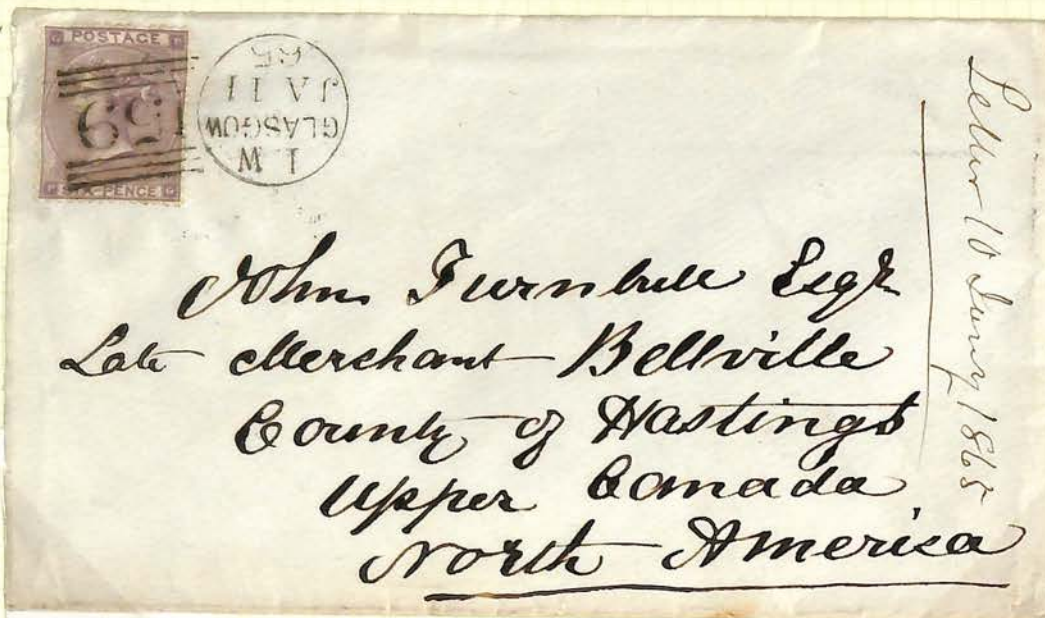 POSTAGE
SIX-PENCE
159
1 W
GLASGOW
JA 11
65
John Turnbull Esqr
Late Merchant Bellville
County of Hastings
Upper Canada
North America
Letter 10 Jany 1865